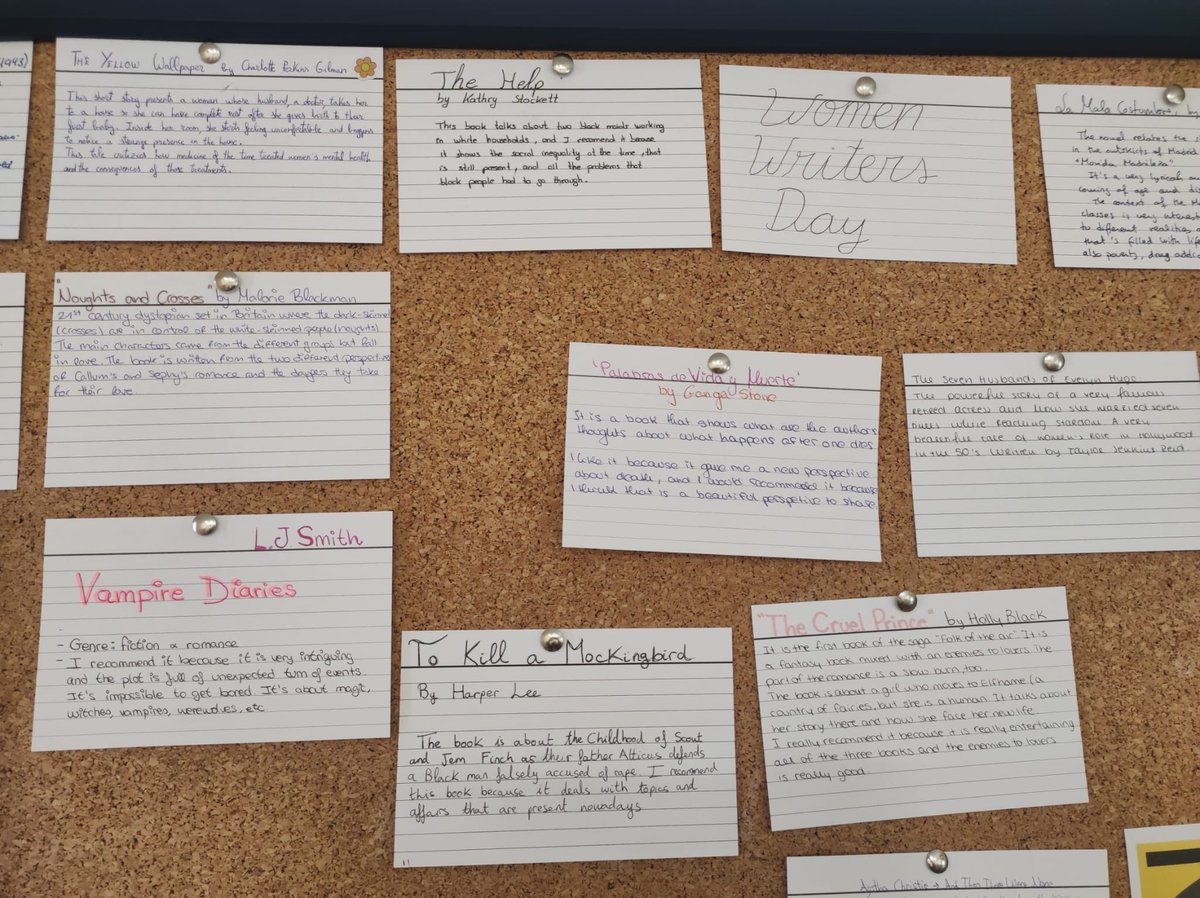 1943)
THE YELLOW WALLPAPER by Charlotte Perkins Gilman
This short story presents a woman whose husband, a doctor, takes her
to a house so she can have complete rest after she gives birth to their
first baby. Inside her room, she starts feeling uncomfortable and
to notice a strange presence in the house.
This tale criticizes how medicine of the time treated women's mental health
and the consequences of those treatments.
The Help
by Kathry Stockett
This book talks about two black maids working
in white households, and I recomend it because
it shows the social inequality at the time, that
is still present, and all the problems that
black people had to go through.
Women
Writers
Day
La Mala Costumbre, by
The novel relates the
in the outskirts of Madrid
"Movida Madrileña"
It's a very lyrical
coming of age and
The context of the
classes is very
to different realities
that's filled with
also poverty, drug
"Noughts and Crosses" by Malorie Blackman
21st century dystopian set in Britain where the dark-skinned
(crosses) are in control of the white-skinned people (noughts)
The main characters came from the different groups but fall
in love. The book is written from the two different perspective
of Callum's and Sephy's romance and the dangers they take
for their love.
'Palabras de Vida y Muerte'
by Ganga Stone
It is a book that shows what are the authors
thoughts about what happens after one dies
I like it because it gave me a new perspective
about death, and I would recommend it because
I think that is a beautiful perspetive to share
The Seven Husbands of Evelyn Hugo
The powerful story of a very famous
retired actress and how she married seven
times while reaching stardom. A very
beautiful tale of women's role in Hollywood
in the 50's written by Taylor Jenkins Reid.
L.J Smith
Vampire Diaries
- Genre: fiction & romance
- I recommend it because it is very intriguing
and the plot is full of unexpected turn of events.
It's impossible to get bored. It's about magic,
witches, vampires, werewolves, etc
To Kill a Mockingbird
By Harper Lee
The book is about the Childhood of Scout
and Jem Finch as their father Atticus defends
a Black man falsely accused of rape. I recommend
this book because it deals with topics and
affairs that are present nowadays.
"The Cruel Prince" by Holly Black
It is the first book of the saga "Folk of the air". It is
a fantasy book mixed with an enemies to lovers. The
part of the romance is a slow burn, too.
The book is about a girl who moves to Elfhame (a
country of fairies, but she is a human. It talks about
her story there and how she face her new life.
I really recommend it because it is really entertaining
all of the three books and the enemies to lovers
is really good.
Agatha Christie → And Then There Were None